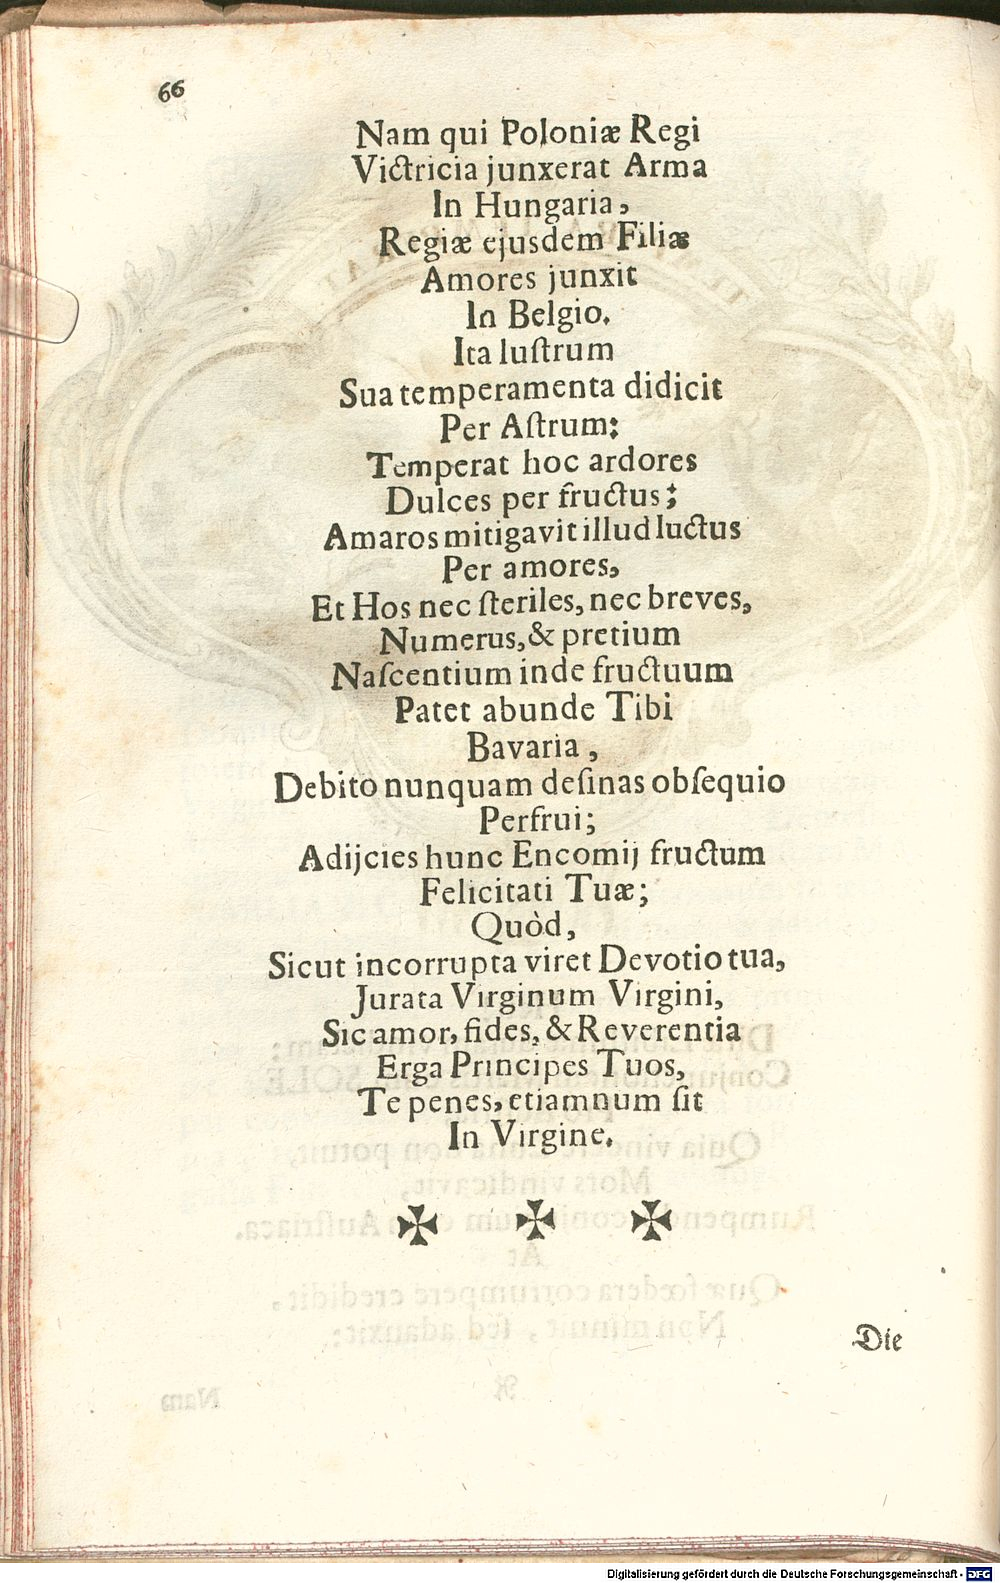 66
Nam qui Poloniæ Regi
Victricia junxerat Arma
In Hungaria,
Regiæ ejusdem Filiæ
Amores junxit
In Belgio.
Ita luſtrum
Sua temperamenta didicit
Per Aſtrum:
Temperat hoc ardores
Dulces per fructus;
Amaros mitigavit illud luctus
Per amores,
Et Hos nec ſteriles, nec breves,
Numerus, & pretium
Naſcentium inde fructuum
Patet abunde Tibi
Bavaria,
Debito nunquam deſinas obſequio
Perfrui;
Adijcies hunc Encomij fructum
Felicitati Tuæ;
Quòd,
Sicut incorrupta viret Devotio tua,
Jurata Virginum Virgini,
Sic amor, fides, & Reverentia
Erga Principes Tuos,
Te penes, etiamnum ſit
In Virgine.
✠ ✠ ✠
Die
Digitalisierung gefördert durch die Deutsche Forschungsgemeinschaft - DFG